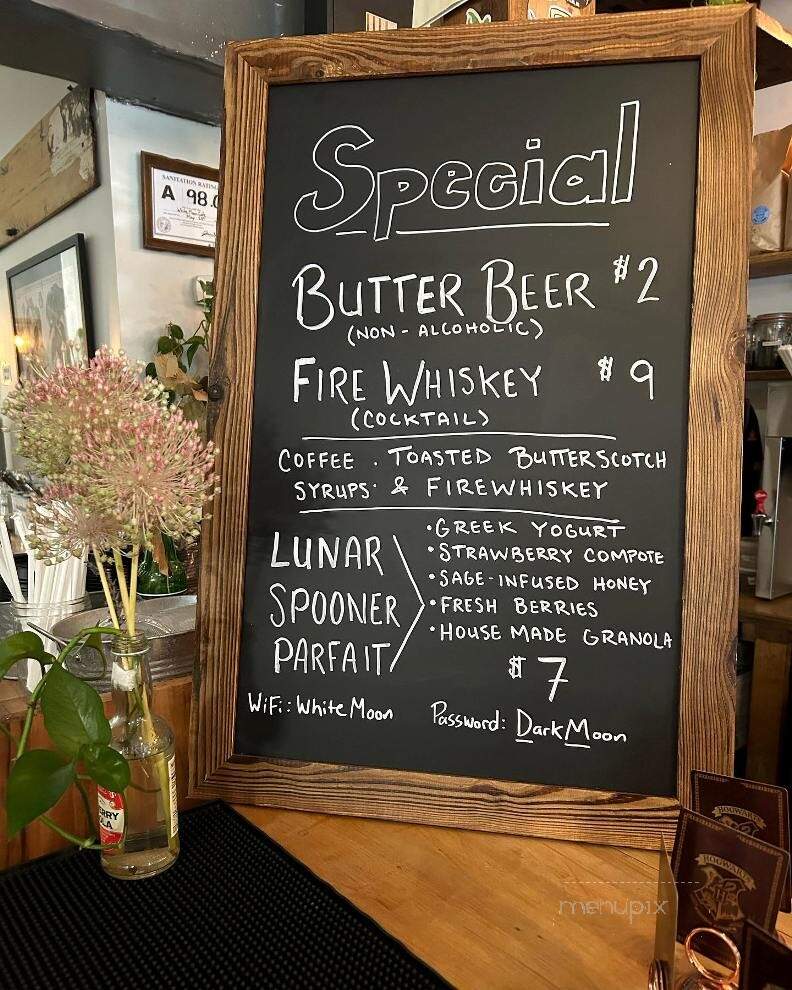 SANITATION RATING
A 98.0
Special
BUTTER BEER $2
(NON-ALCOHOLIC)
FIRE WHISKEY $9
(COCKTAIL)
COFFEE . TOASTED BUTTERSCOTCH
SYRUPS & FIREWHISKEY
LUNAR
SPOONER
PARFAIT
•GREEK YOGURT
•STRAWBERRY COMPOTE
•SAGE-INFUSED HONEY
•FRESH BERRIES
•HOUSE MADE GRANOLA
$7
WiFi: WhiteMoon Password: DarkMoon
HOGWARTS
HOGWARTS
menupix